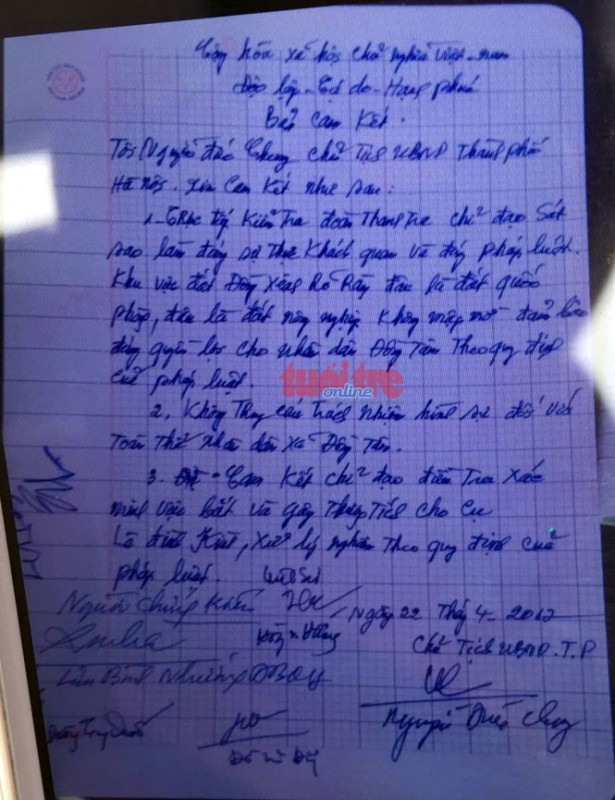 Cộng hòa xã hội chủ nghĩa Việt-nam
Độc lập - Tự do - Hạnh phúc
Bản Cam Kết.
Tôi Nguyễn đức Chung Chủ Tịch UBND Thành phố
Hà Nội. xin Cam Kết như sau:
1- Trực tiếp Kiểm Tra đoàn Thanh tra chỉ đạo Sát
sao làm đúng sự thật Khách quan và đúng pháp luật.
Khu vực đất Đồng Xênh Rõ Ràng đâu là đất quốc
phòng, đâu là đất nông nghiệp Không mập mờ đảm bảo
đúng quyền lợi cho nhân dân Đồng Tâm Theo quy định
của pháp luật.
tuổi trẻ
online
2, Không Truy cứu Trách nhiệm hình sự đối với
Toàn Thể nhân dân xã Đồng Tâm.
3. Cam Kết chỉ đạo điều Tra Xác
minh việc bắt và gây Thương Tích cho Cụ
Lê đình Kình, xử lý nghiêm theo quy định của
pháp luật. Luật sư
Người chứng kiến
Ngày 22 Thg 4-2017
Chủ Tịch UBND.T.P
Lưu Bình Nhưỡng
Nguyễn Đức Chung